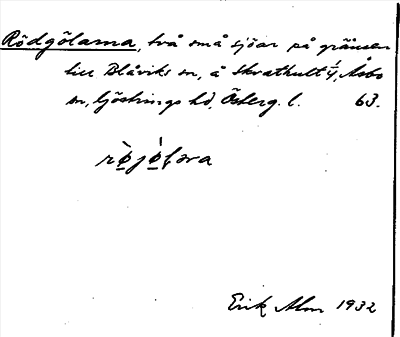 Rödgölarna, två små sjöar på gränsen
till Blåviks sn, å Skrathult 1/4, Åsbo
sn, Göstrings hd, Österg. l. 63.
Erik Alm 1932